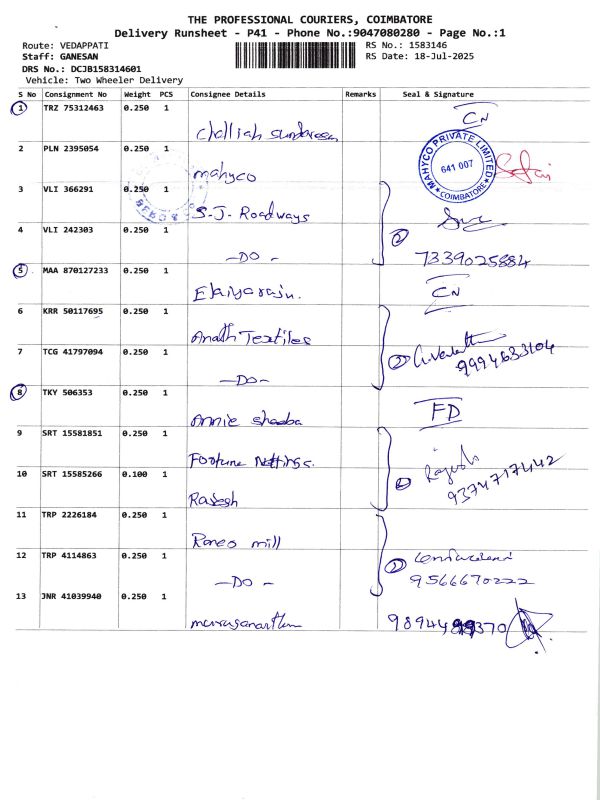 THE PROFESSIONAL COURIERS, COIMBATORE
Delivery Runsheet - P41 - Phone No.:9047080280 - Page No.:1
Route: VEDAPPATI
RS No.: 1583146
Staff: GANESAN
RS Date: 18-Jul-2025
DRS No.: DCJB158314601
Vehicle: Two Wheeler Delivery
S No Consignment No Weight PCS Consignee Details Remarks Seal & Signature
1 TRZ 75312463 0.250 1
CN
2 PLN 2395054 0.250 1
mahyco
MAHYCO PRIVATE LIMITED
641 007
COIMBATORE
3 VLI 366291 0.250 1
S.J. Roadways
4 VLI 242303 0.250 1
-DO-
② 7339025884
5 MAA 870127233 0.250 1
CN
6 KRR 50117695 0.250 1
Textiles
7 TCG 41797094 0.250 1
-DO-
② 9994633104
8 TKY 506353 1 0.250
Annie
FD
9 SRT 15581851 0.250 1
Fortune Nettings.
10 SRT 15585266 0.100 1
Rajesh
Rajesh
9374717442
11 TRP 2226184 0.250 1
Roneo mill
12 TRP 4114863 0.250 1
-DO-
9566670222
13 JNR 41039940 0.250 1